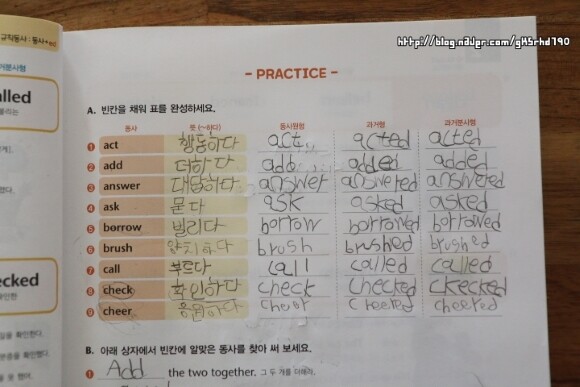 http://blog.naver.com/gk5rhd790
규칙동사 : 동사+ed
- PRACTICE -
A. 빈칸을 채워 표를 완성하세요.
동사 뜻 (~하다) 동사원형 과거형 과거분사형
1 act 행동하다 act acted acted
2 add 더하다 add added added
3 answer 대답하다 answer answered answered
4 ask 묻다 ask asked asked
5 borrow 빌리다 borrow borrowed borrowed
6 brush 양치하다 brush brushed brushed
7 call 부르다 call called called
8 check 확인하다 check checked checked
9 cheer 응원하다 cheer cheered cheered
B. 아래 상자에서 빈칸에 알맞은 동사를 찾아 써 보세요.
1 Add the two together. 그 두 개를 더해라.